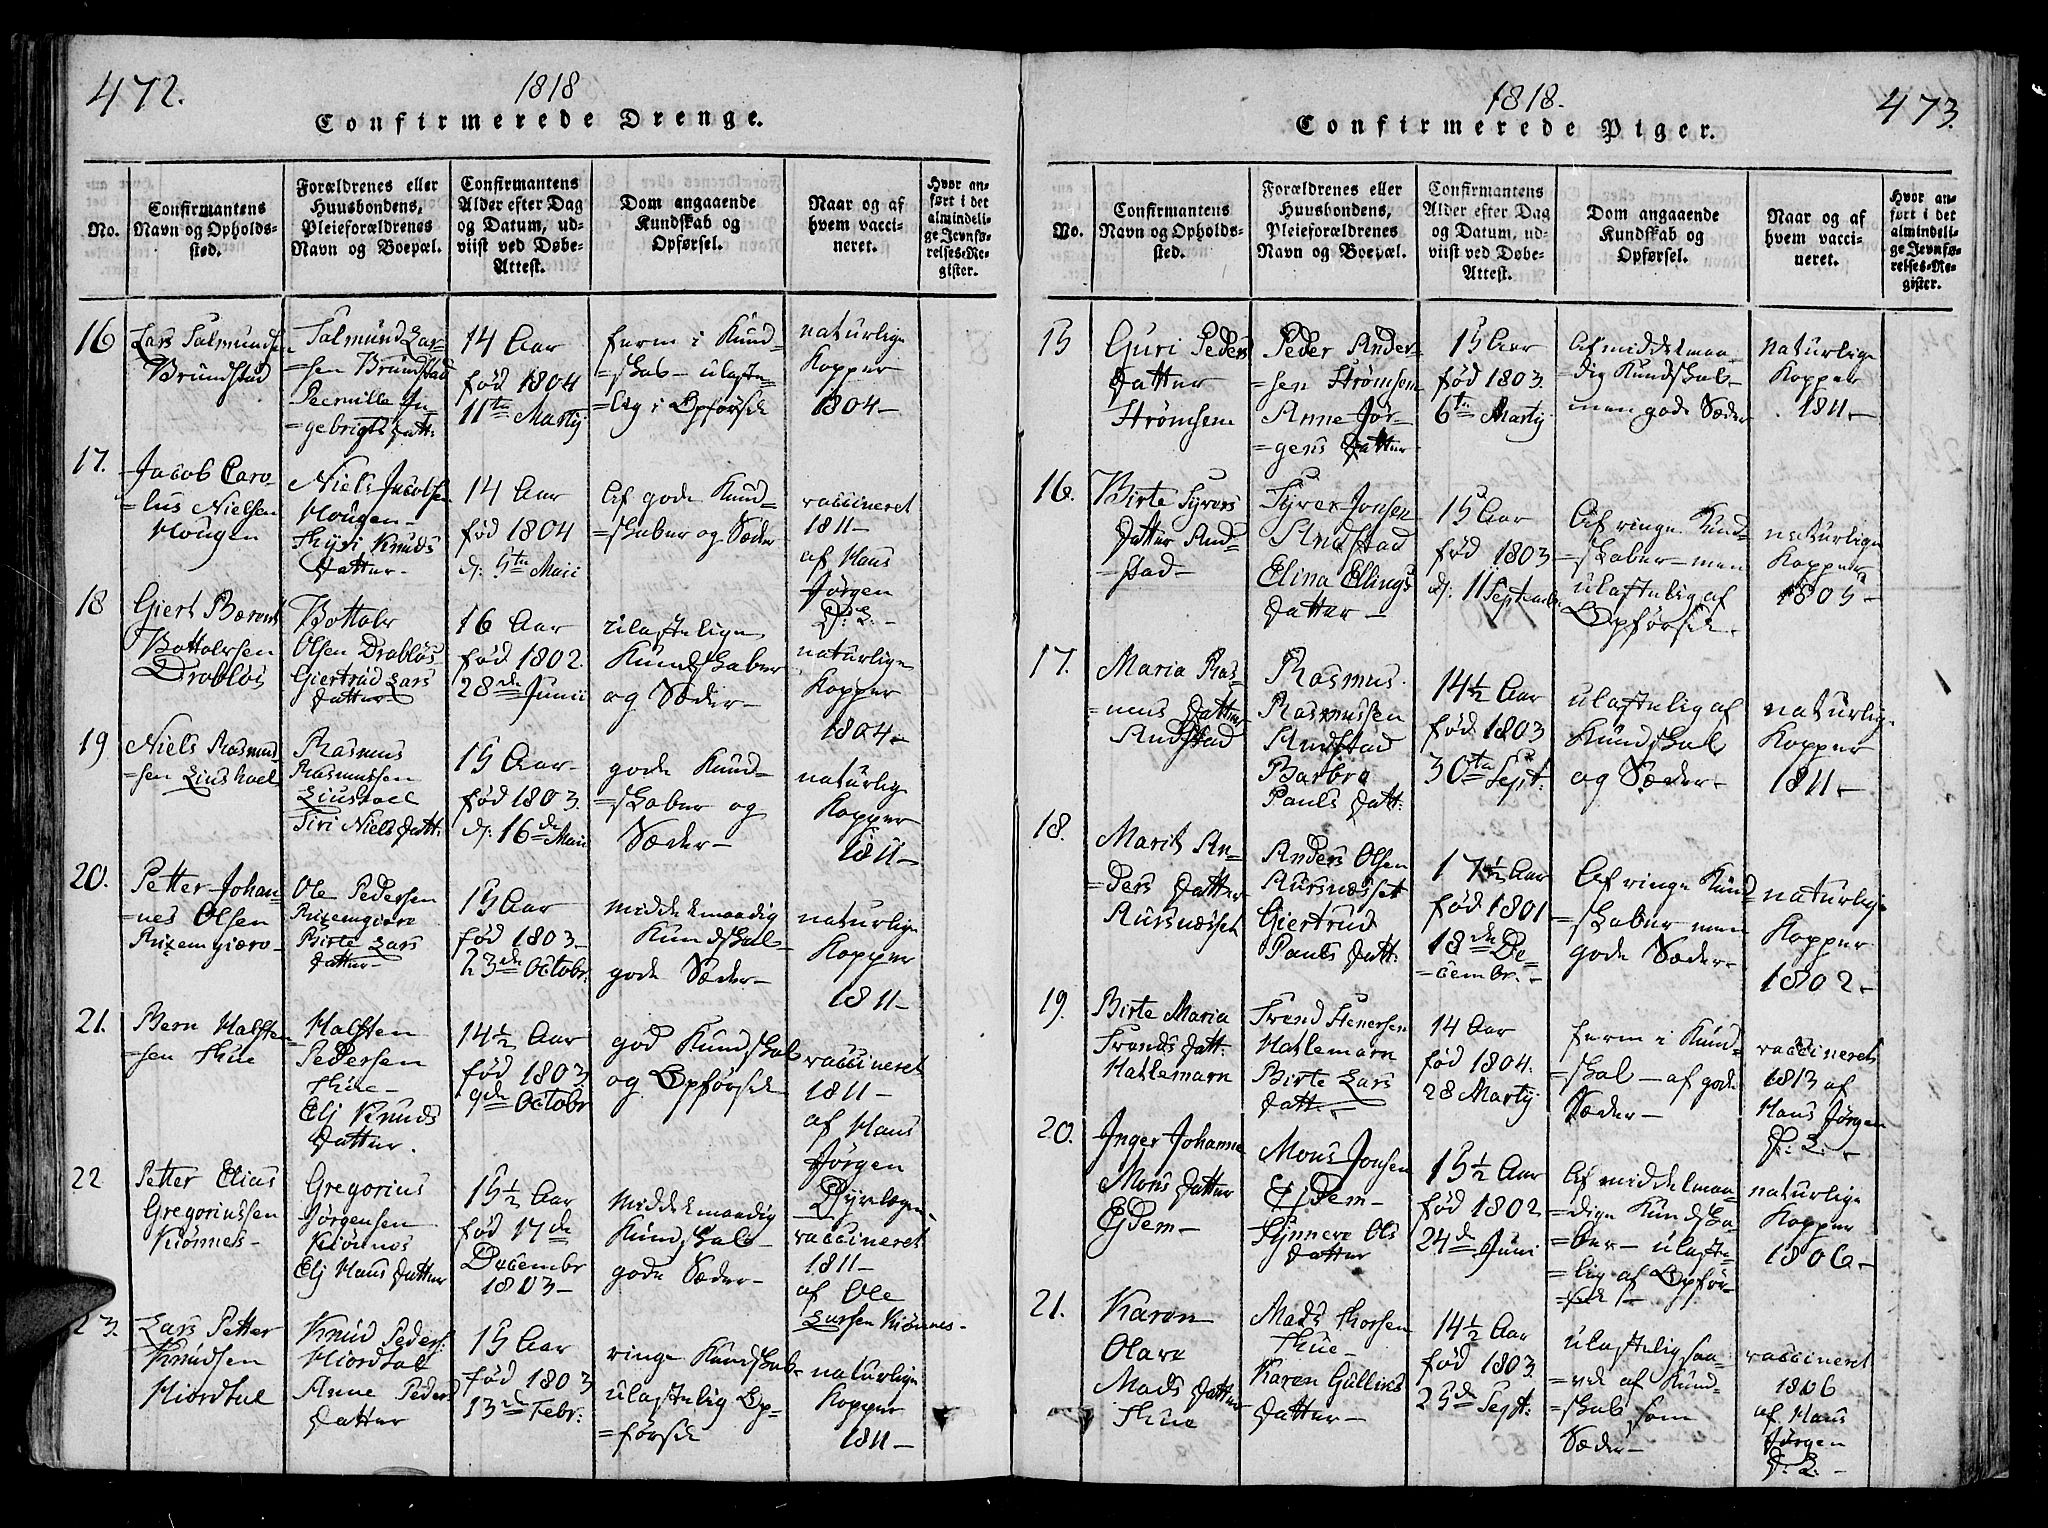 472.
1818
Confirmerede Drenge.
No.
Confirmantens
Navn og Opholds-
sted.
Forældrenes eller
Huusbondens,
Pleieforældrenes
Navn og Boepæl.
Confirmantens
Alder efter Dag
og Datum, ud-
viist ved Døbe-
Attest.
Dom angaaende
Kundskab og
Opførsel.
Naar og af
hvem vacci-
neret.
Hvor an-
ført i det
almindeli-
ge Jevnfø-
relses-Re-
gister.
16
Lars Salmundsen
Brundstad
Salmund Lar-
=sen Brundstad
Peernille In-
=gebrigts Datt:
14 Aar
fød 1804
11te Martij
ferm i Kund-
=skab - ulaste-
=lig i Opførsel
naturlige
Kopper
1804-
17.
Jacob Caro-
=lus Nielsen
Hougen
Niels Jacobsen
Hougen-
Thyri Knuds
Datter-
14 Aar
fød 1804
d: 5te Maii
Af gode Kund-
=skaber og Sæder
vaccineret
1811-
af Hans
Jørgen
D: L:-
18
Giert Bærent
Bottolvsen
Drabløs
Bottolv
Olsen Drabløs
Giertrud Lars
Datter-
16 Aar
fød 1802.
28de Junii
ulastelige
Kundskaber
og Sæder-
naturlige
Kopper
1804-
19
Niels Rasmus-
=sen Liushoel
Rasmus
Rasmussen
Liushoel
Siri Niels Datt:
15 Aar-
fød 1803.
d: 16de Maii
gode Kund-
=skaber og
Sæder-
naturlige
Kopper
1811-
20.
Petter Johan-
=nes Olsen
Ole Pedersen
Birte Lars
Datter-
15 Aar
fød 1803-
23de Octobr:
middelmaadig
Kundskab-
gode Sæder-
naturlige
Kopper
1811-
21.
Bern Halsten-
=sen Thue
Halsten
Pedersen
Thue-
Elj Knuds
Datter.
14½ Aar
fød 1803.
9de Octobr
god Kundskab
og Opførsel
vaccineret
1811-
af Hans
Jørgen
Dyrlægen-
22
Petter Elias
Gregoriussen
Kiønnes-
Gregorius
Jørgensen
Kiønnes
Elj Hans Datter
15½ Aar
fød 17de
Decembr
1803-
middelmaadig
Kundskab-
gode Sæder-
vaccineret
1811-
af Ole
Larsen Kiønnes-
23.
Lars Petter
Knudsen
Hiordtal
Knud Peders:
Hiordtal
Anne Peders
Datter
15 Aar
fød 1803
13de Febr:
ringe Kundskab-
ulastelig Op-
=førsel
naturlige
Kopper
1811-
1818.
473.
Confirmerede Piger.
No.
Confirmantens
Navn og Opholds-
sted.
Forældrenes eller
Huusbondens,
Pleieforældrenes
Navn og Boepæl.
Confirmantens
Alder efter Dag
og Datum, ud-
viist ved Døbe-
Attest.
Dom angaaende
Kundskab og
Opførsel.
Naar og af
hvem vacci-
neret.
Hvor an-
ført i det
almindeli-
ge Jevnfø-
relses-Re-
gister.
15
Guri Peders
Datter
Strømsem
Peder Ander-
=sen Strømsem
Anne Jør-
=gens Datter
15 Aar
fød 1803.
6te Martij
Af middelmaa-
dig Kundskab-
men gode Sæder
naturlige
Kopper
1811-
16.
Birte Syvers
Datter And-
=stad-
Syver Jonsen
Andstad
Elina Ellings
Datter-
15 Aar
fød 1803
d: 11 Septembr
Af ringe Kund-
=skaber-men
ulastelig af
Opførsel-
naturlige
Kopper
1805-
17.
Maria Ras-
=mus Datter
Andstad
Rasmus
Rasmussen
Andstad
Barbro
Pauls Datt:
14½ Aar
fød 1803
30te Sept:
ulastelig af
Kundskab
og Sæder-
naturlige
Kopper
1811-
18.
Marit An-
=ders Datter
Aursnæsset
Anders Olsen
Aursnæsset
Giertrud
Pauls Datt:
17½ Aar
fød 1801
18de De-
=cembr:-
Af ringe Kund
=skaber men
gode Sæder-
naturlige
Kopper
1802-
19.
Birte Maria
Trands Datt:
Hatlemarn
Trand Stenersen
Hatlemarn
Birte Lars
Datt:-
14 Aar
fød 1804.
28 Martij
ferm i Kund-
=skab-af gode
Sæder-
vaccineret
1813 af
Hans Jørgen
D: L:-
20.
Inger Johanna
Mons Datter
Ejdem-
Mons Jonsen
Ejdem-
Synneve Ols
Datter
15½ Aar
fød 1802
24de Juni
Af middelmaa-
=dige Kundska-
=ber-ulaste-
=lig af Opfør-
=sel-
naturlige
Kopper
1806-
21.
Karen
Olave
Mads Datter
Thue
Mads Thorsen
Thue-
Karen Gullins
Datter-
14½ Aar
fød 1803
25de Sept:
ulastelig saa-
=vel af Kund-
=skab, som
Sæder-
vaccineret
1806
af Hans
Jørgen
D: L:-